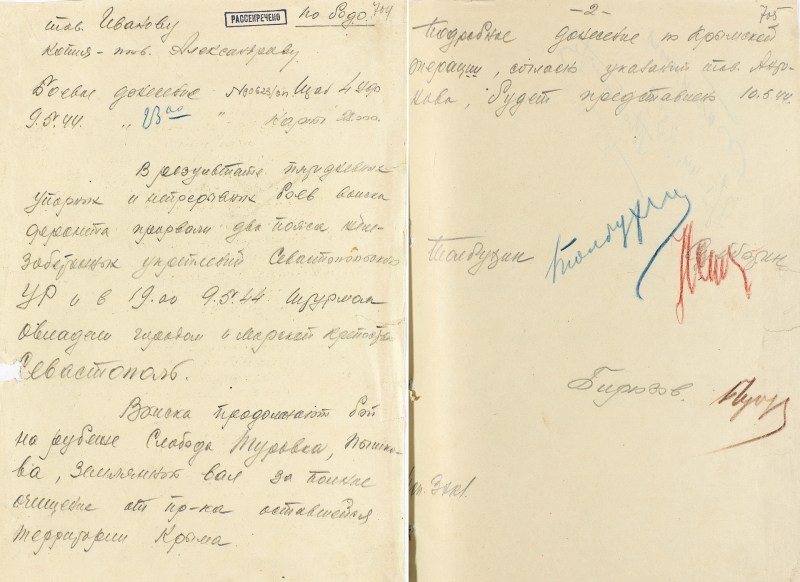 704
РАССЕКРЕЧЕНО
по Бодо
тов. Иванову
копия - тов. Александрову
Боевое донесение Штаб 4 Укр
9.5.44. „ 23 00 " Карта
В результате пятидневных
упорных и непрерывных боев войска
фронта прорвали два пояса желе-
зобетонных укреплений Севастопольского
УР и в 19.00 9.5.44 штурмом
овладели городом и морской крепостью
Севастополь.
Войска продолжают бой
на рубеже Слобода Туровка,
Земляной вал за полное
очищение от пр-ка оставшейся
территории Крыма
- 2 -
705
Подробное донесение по Крымской
операции, согласно указаний тов. Анто-
нова, будет представлено 10.5.44.
Толбухин Толбухин Субботин
Бирюзов.